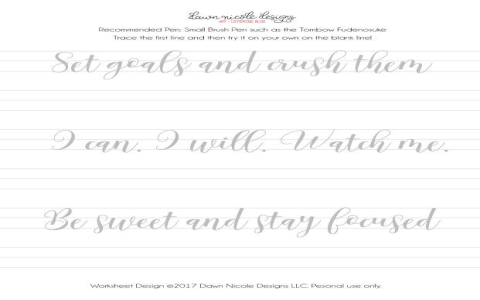 dawn nicole designs
ART + LETTERING BLOG
Recommended Pen: Small Brush Pen such as the Tombow Fudenosuke
Trace the first line and then try it on your own on the blank line!
Set goals and crush them
I can. I will. Watch me.
Be sweet and stay focused
Worksheet Design ©2017 Dawn Nicole Designs LLC. Pesonal use only.